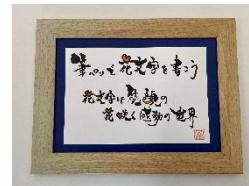 筆ペンで花文字を書こう
花文字は笑顔の
花咲く感動の世界